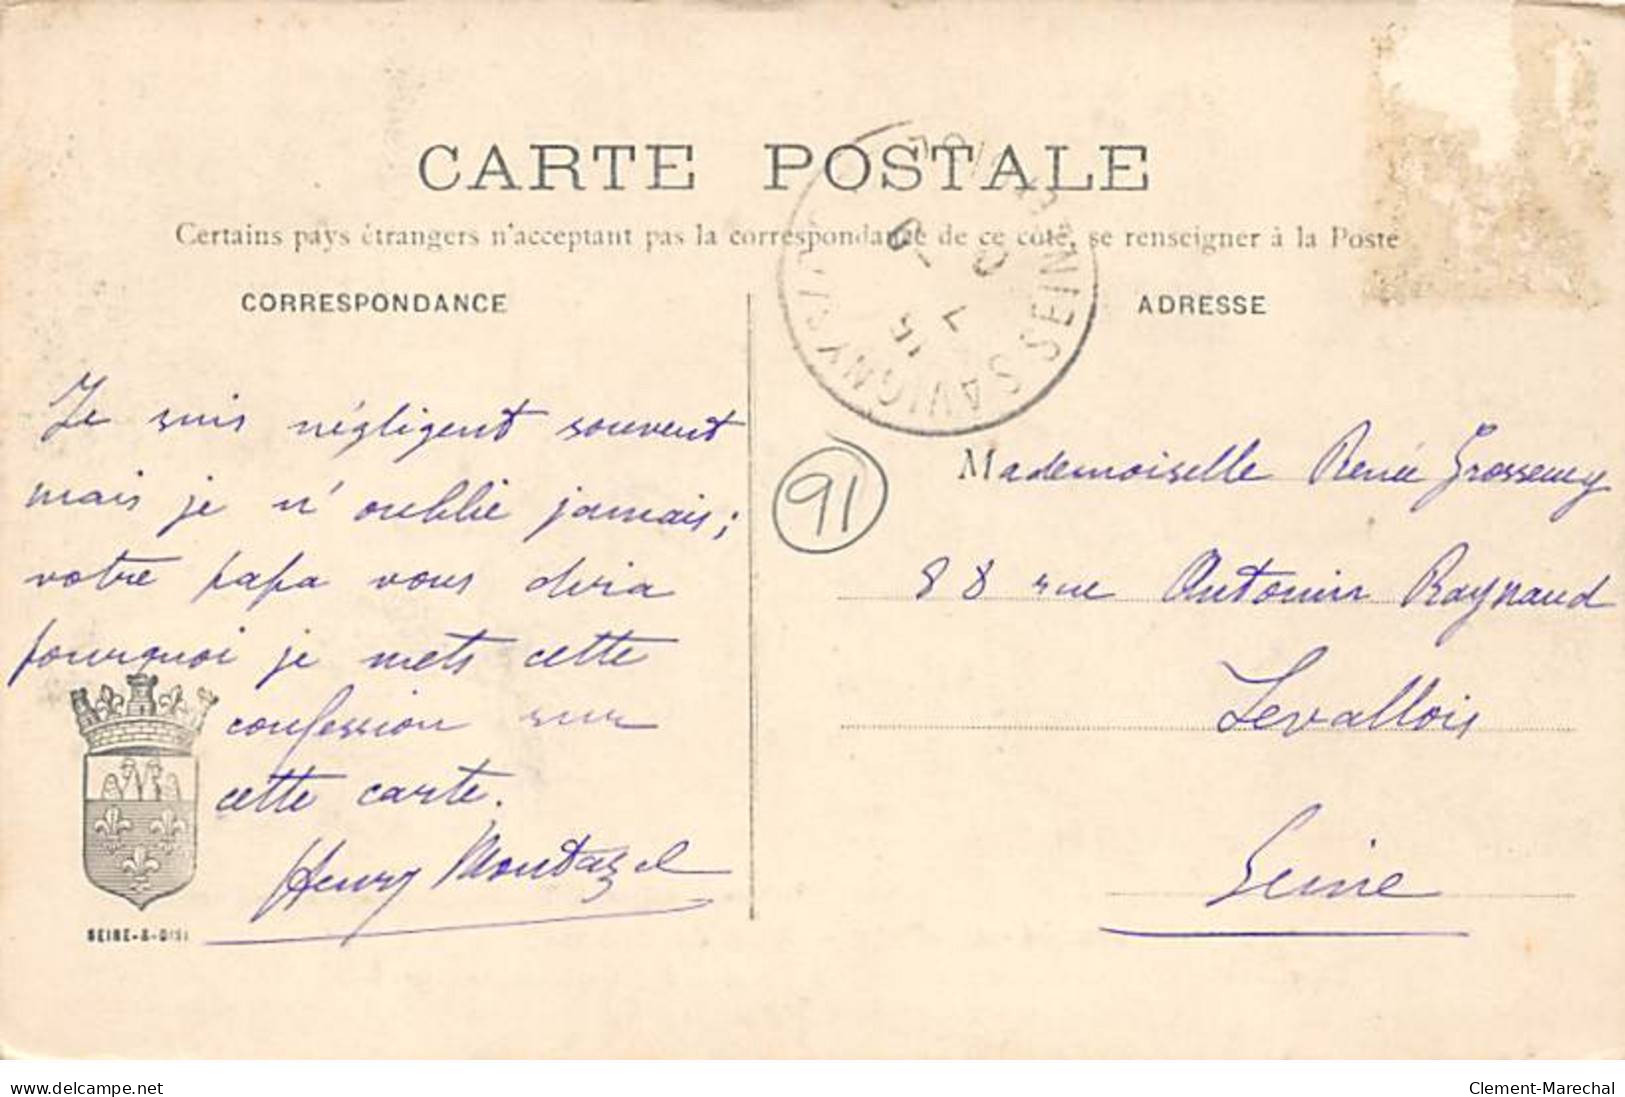 CARTE POSTALE
Certains pays étrangers n'acceptant pas la correspondance de ce côté, se renseigner à la Poste
CORRESPONDANCE
ADRESSE
SAVIGNY
Je suis négligent souvent
mais je n'oublie jamais;
votre papa vous dira
pourquoi je mets cette
confession sur
cette carte.
Henry Montazel
SEINE-&-OISE
91
Mademoiselle Renée
88 rue Antonin Raynaud
Levallois
Seine
www.delcampe.net
Clement-Marechal